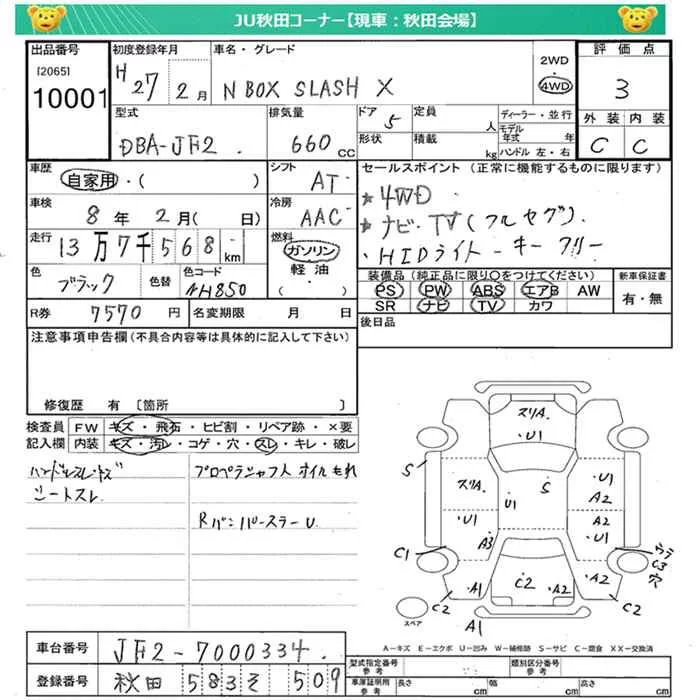 JU秋田コーナー【現車：秋田会場】
出品番号 初度登録年月 車名・グレード 評価点
[2065] H 27年 2月 N BOX SLASH X 2WD 4WD 3
10001
型式 排気量 ドア 定員 ディーラー・並行 外装 内装
DBA-JF2 660cc 5 人 モデル年式 年 C C
形状 積載 kg ハンドル 左・右
車歴 自家用・( ) シフト AT セールスポイント (正常に機能するものに限ります)
車検 8年 2月( 日) 冷房 AAC ★4WD
走行 13万7千568km 燃料 ガソリン 軽油 ・( ) ★ナビ・TV(フルセグ)
・HIDライト・キーフリー
色 ブラック 色替 色コード NH850 装備品 (純正品に限り○をつけてください) 新車保証書
PS PW ABS エアB AW 有・無
SR ナビ TV カワ
R券 7570円 名変期限 月 日 後日品
注意事項申告欄(不具合内容等は具体的に記入して下さい)
修復歴 有 [箇所 ]
検査員 FW キズ・飛石・ヒビ割・リペア跡・×要
記入欄 内装 キズ・汚レ・コゲ・穴・スレ・キレ・破レ
ハンドルスレ・キズ プロペラシャフト オイルもれ
シートスレ
Rバンパースラー U
スリA
U1
S スリA U1 S U1 A2
U1 A3 A2 U1
C1 ウラ C3 穴
A1 C2 A2 A2
C2 C2
A1
スペア
A－キズ E－エクボ U－凹み W－補修跡 S－サビ C－腐食 XX－交換済
車台番号 JF2-7000334 型式指定番号 参考 類別区分番号 参考
登録番号 秋田 583 そ 509 車庫証明用 参考 長さ cm 幅 cm 高さ cm